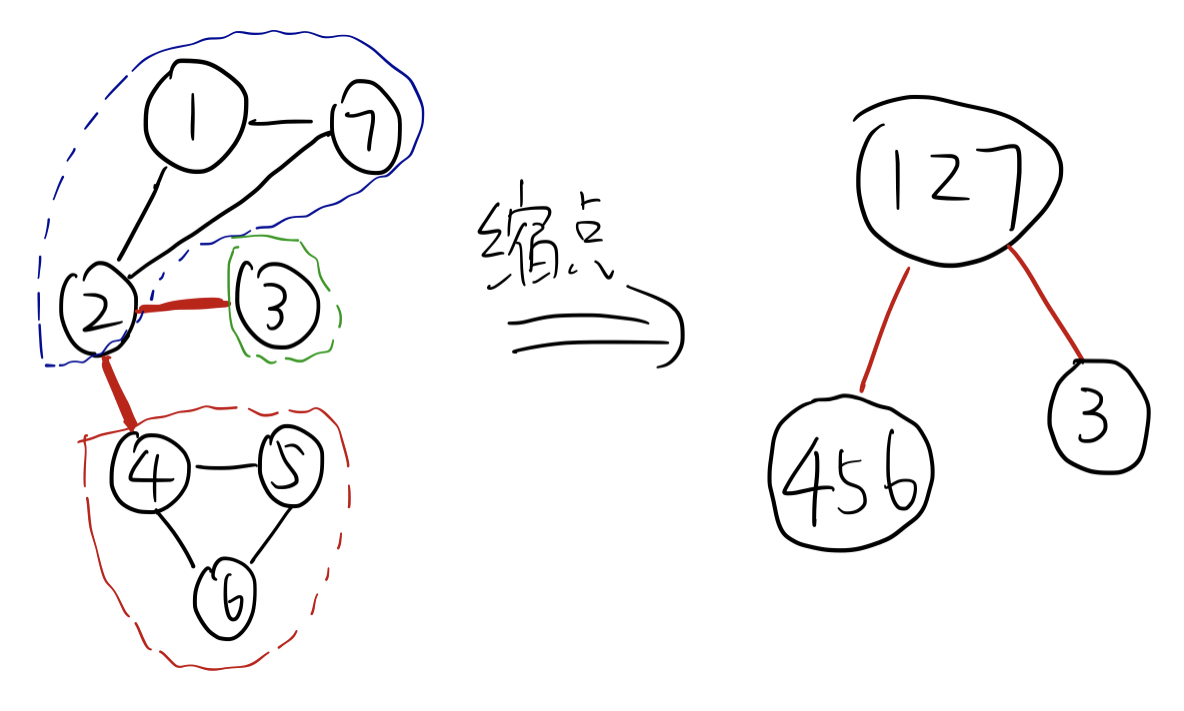 1
7
2
3
4
5
6
缩点
127
456
3